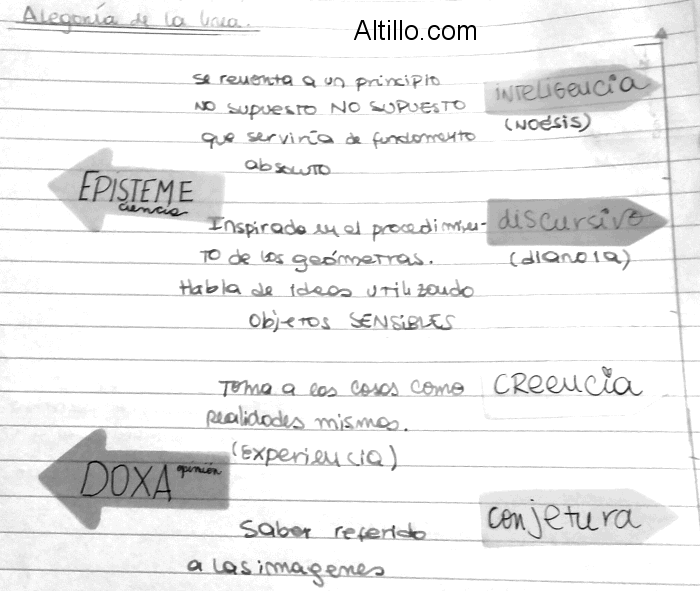 Alegoría de la linea.
Altillo.com
se reuenta a un principio
NO SUPUESTO NO SUPUESTO
que serviría de fundamento
absoluto
INTELIGENCIA
(NOésis)
EPISTEME
ciencia
Inspirado en el procedimien-
TO de los geómetras.
Habla de ideas utilizando
Objetos SENSIBLES
discursivo
(dianoia)
Toma a las cosas como
realidades mismas.
(Experiencia)
CREENCIA
DOXA opinión
Saber referido
a las imagenes
conjetura